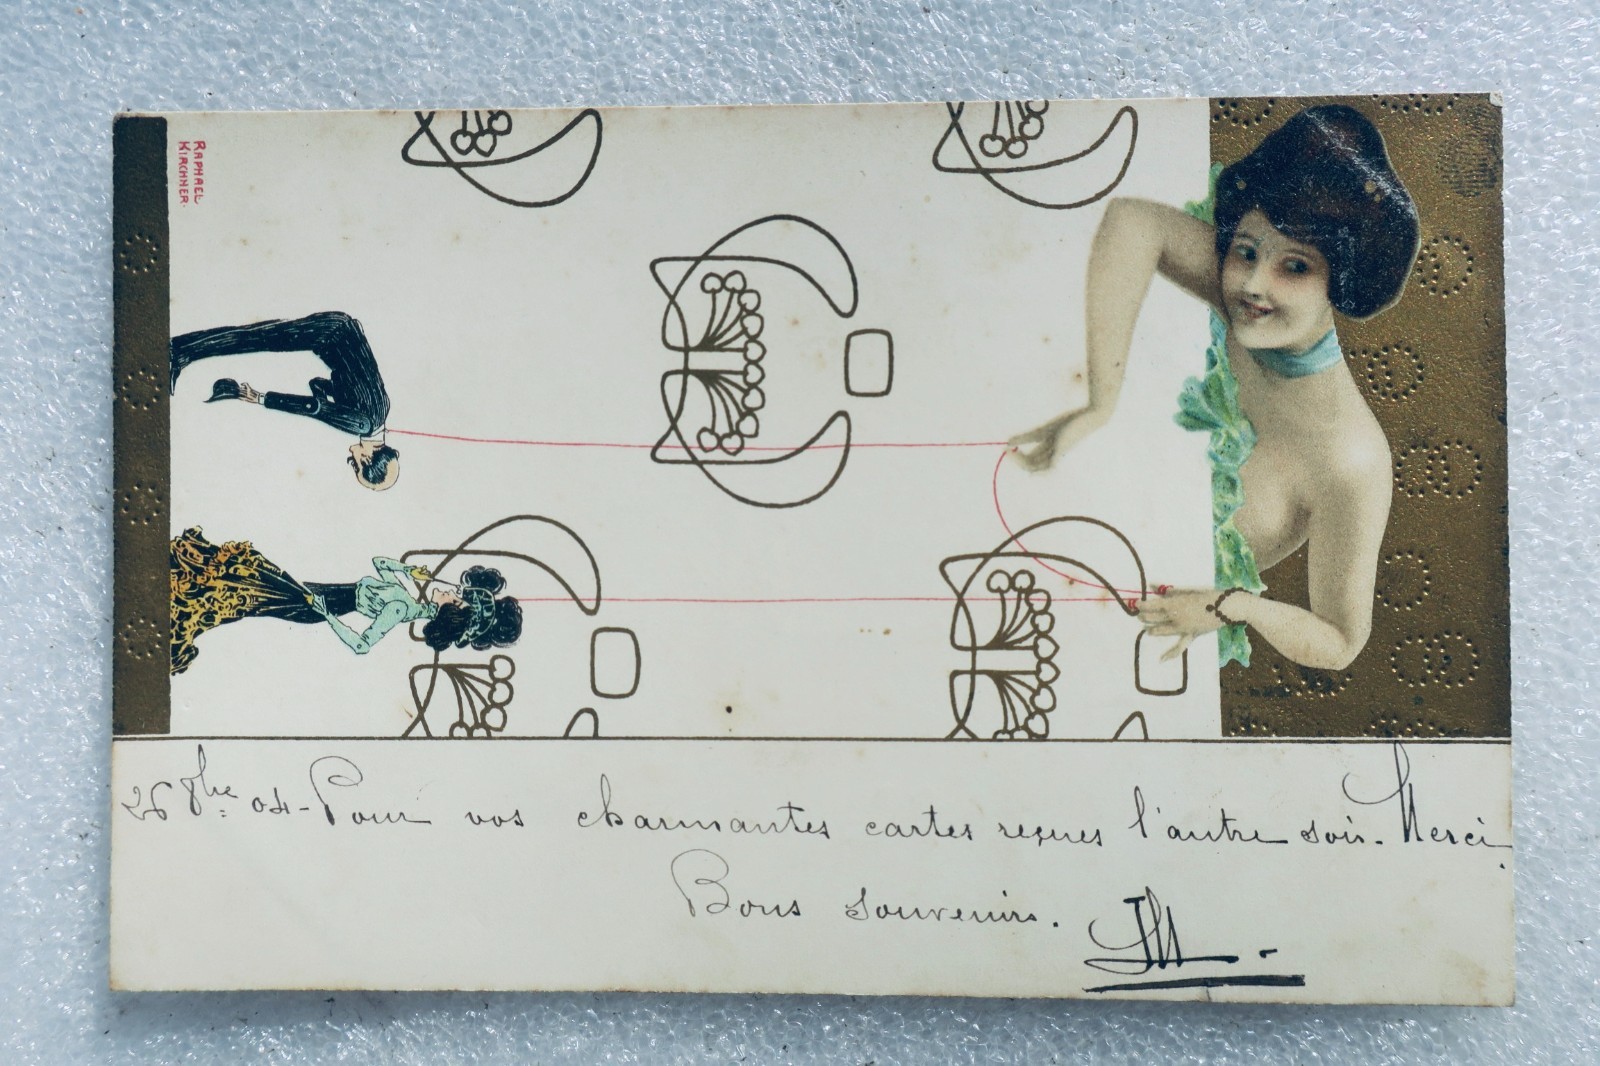 RAPHAEL
KIRCHNER.
26 8bre 04 - Pour vos charmantes cartes reçues l'autre soir. Merci.
Bons souvenirs.